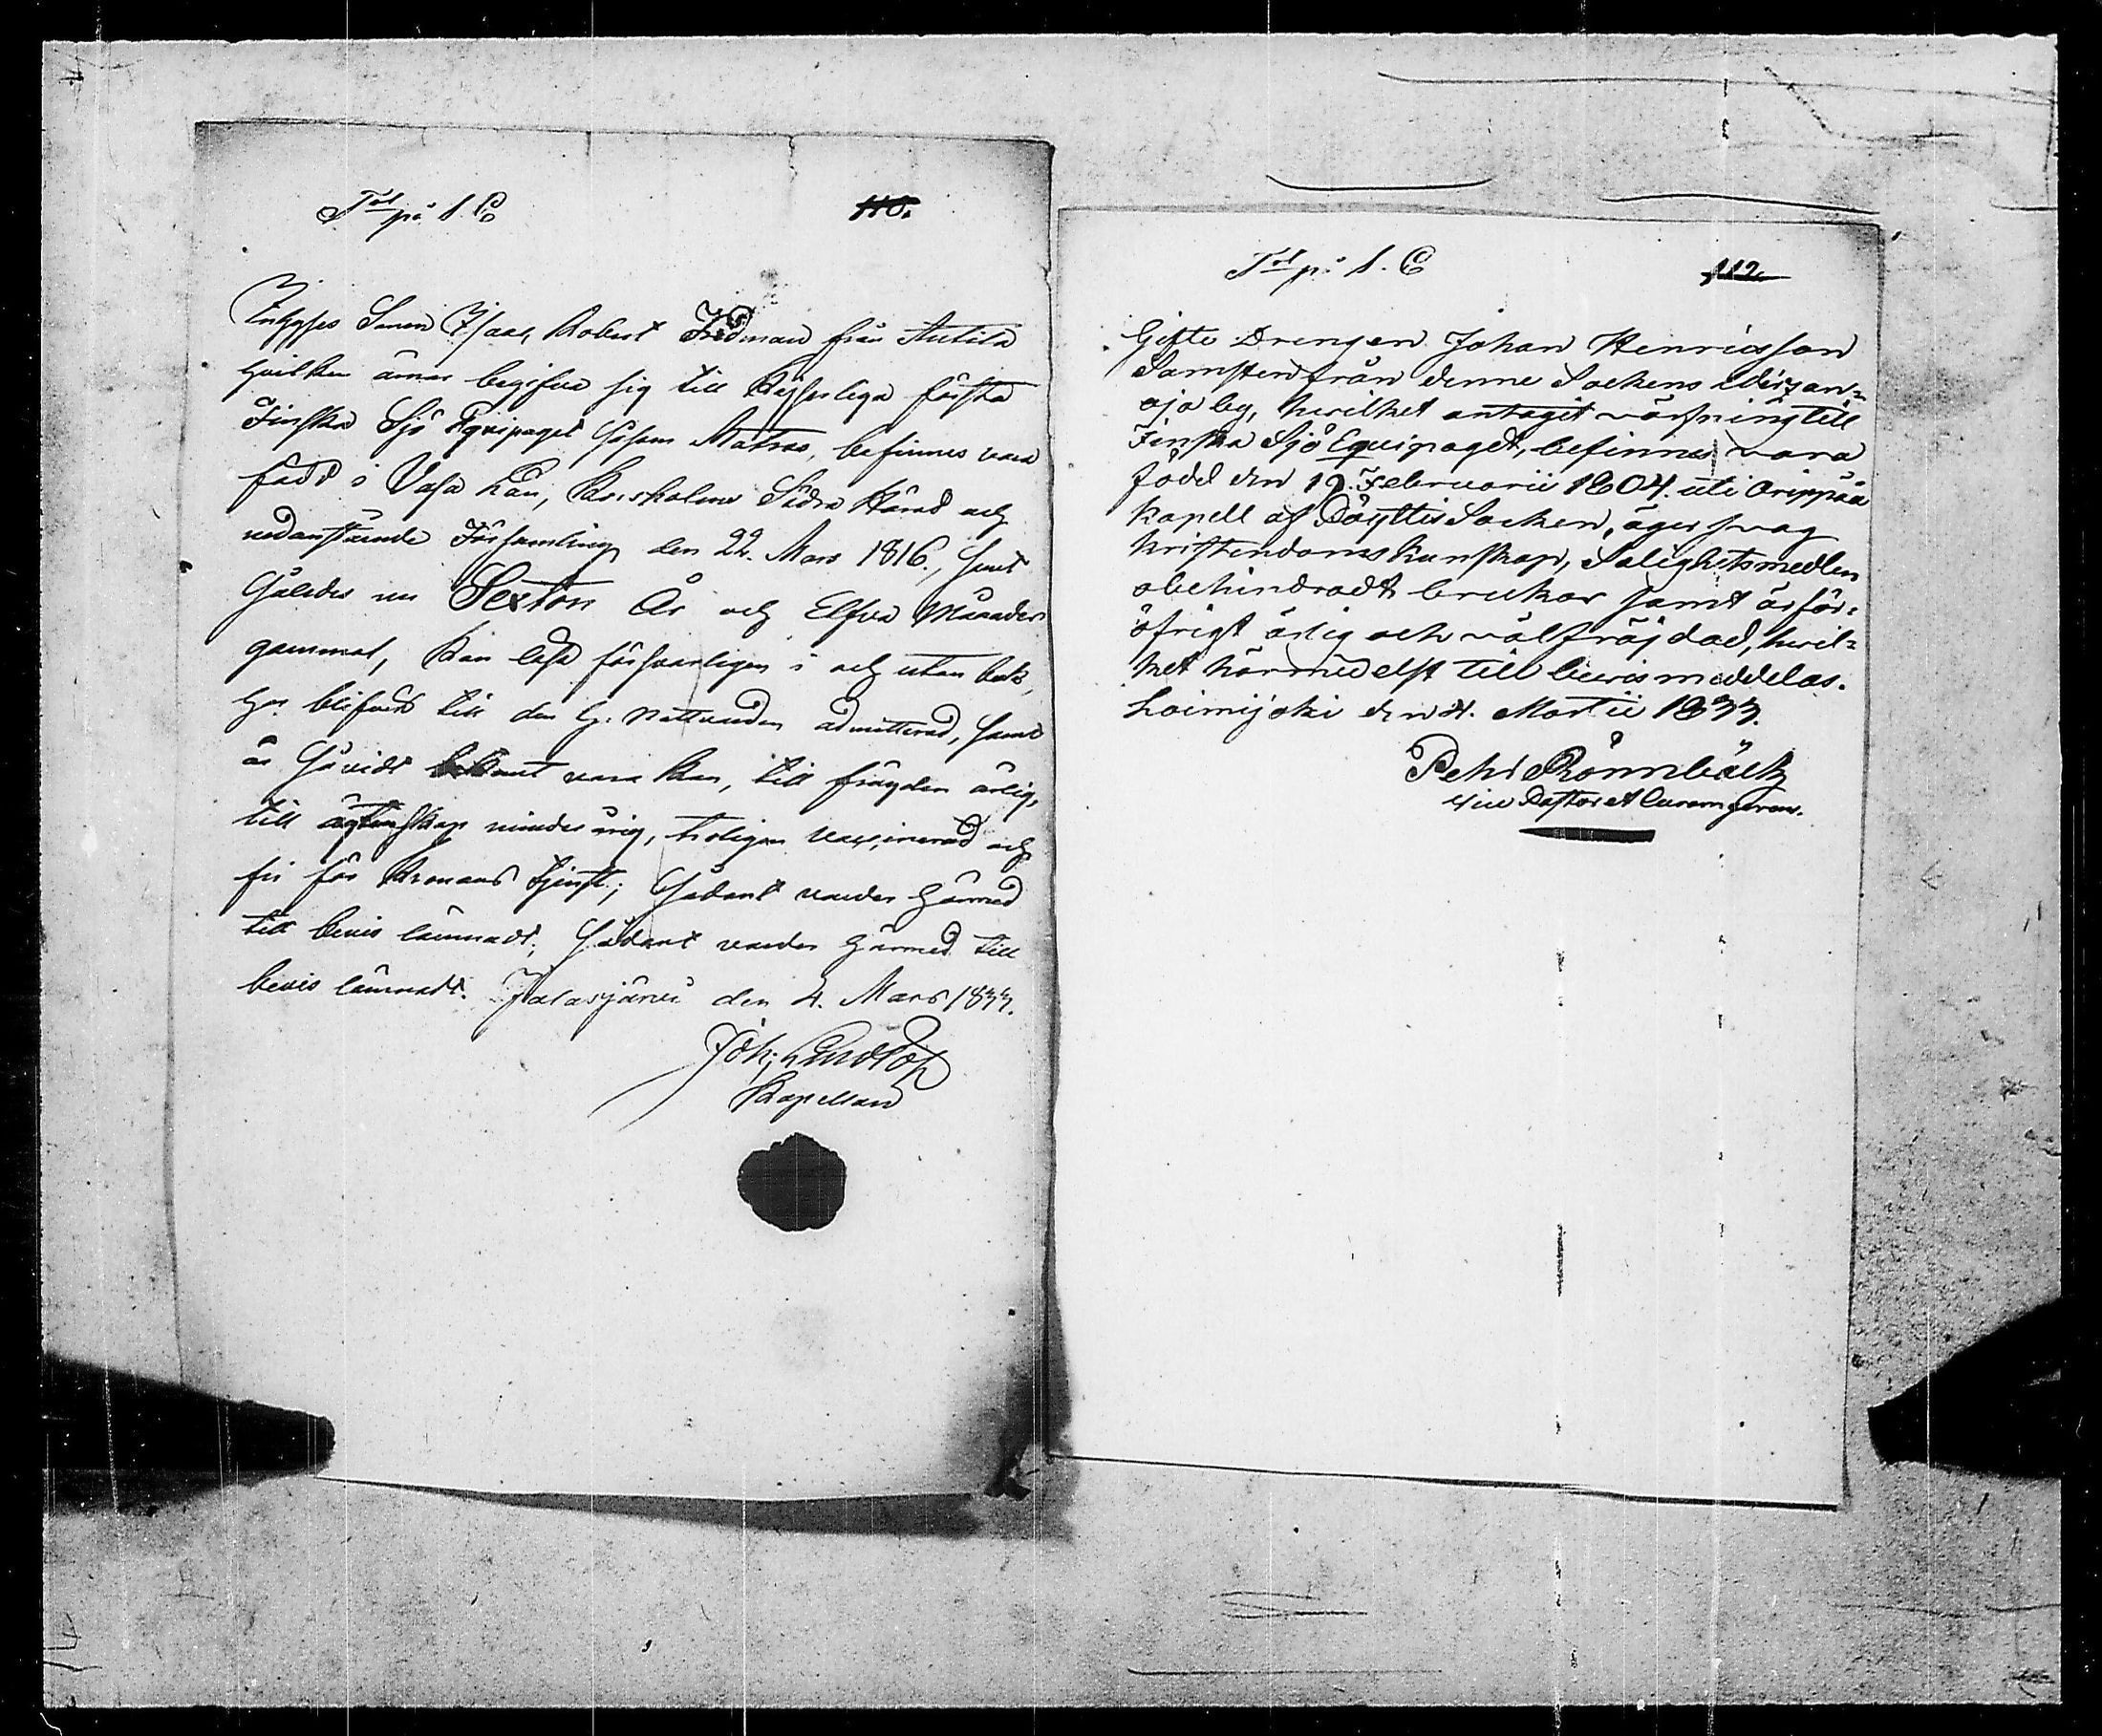 Tal på 1. C
110.
Inhyses Sonen Isaac Robert Fredman från Antila
hvilken ämar begifva sig till Kejserliga första
Finska Sjö Equipaget såsom Matros, befinnes vara
född i Vasa Län, Korsholms Södra Härad och
nedanstående Församling den 22. Mars 1816., samt
således nu Sexton År och Elfva Månader
gammal, Kan läsa försvarligen i och utan bok,
har blifvit till den H. Nattvarden admitterad, samt
är såvidt bekant vara kan, till frägden ärlig,
till ägtenskap minderårig, troligen vaccinerad och
fri för Kronans tjenst; sådant varder härmed
till bevis lämnadt; sådant varder härmed till
bevis lämnadt. Jalasjärvi den 4. Mars 1833.
Joh: Lindlöf
Kapellan
Tal på 1. C
112
Gifte Drengen Johan Henricsson
Samsten från denne Sockens
oja by, hwilket antagit värfning till
Finska Sjö Equipaget, befinnes vara
född den 19. Februarii 1804. uti Oripää
Kapell af Pöyttis Socken, äger svag
Kristendoms Kunskap, Salighetsmedlen
obehindradt brukar samt är för=
öfrigt ärlig och välfräjdad, hwil=
ket härmedelst till bewis meddelas.
Loimijoki den 4. Martii 1833.
Pehr Rönnbäck
Vice Pastor et Curam gerens.